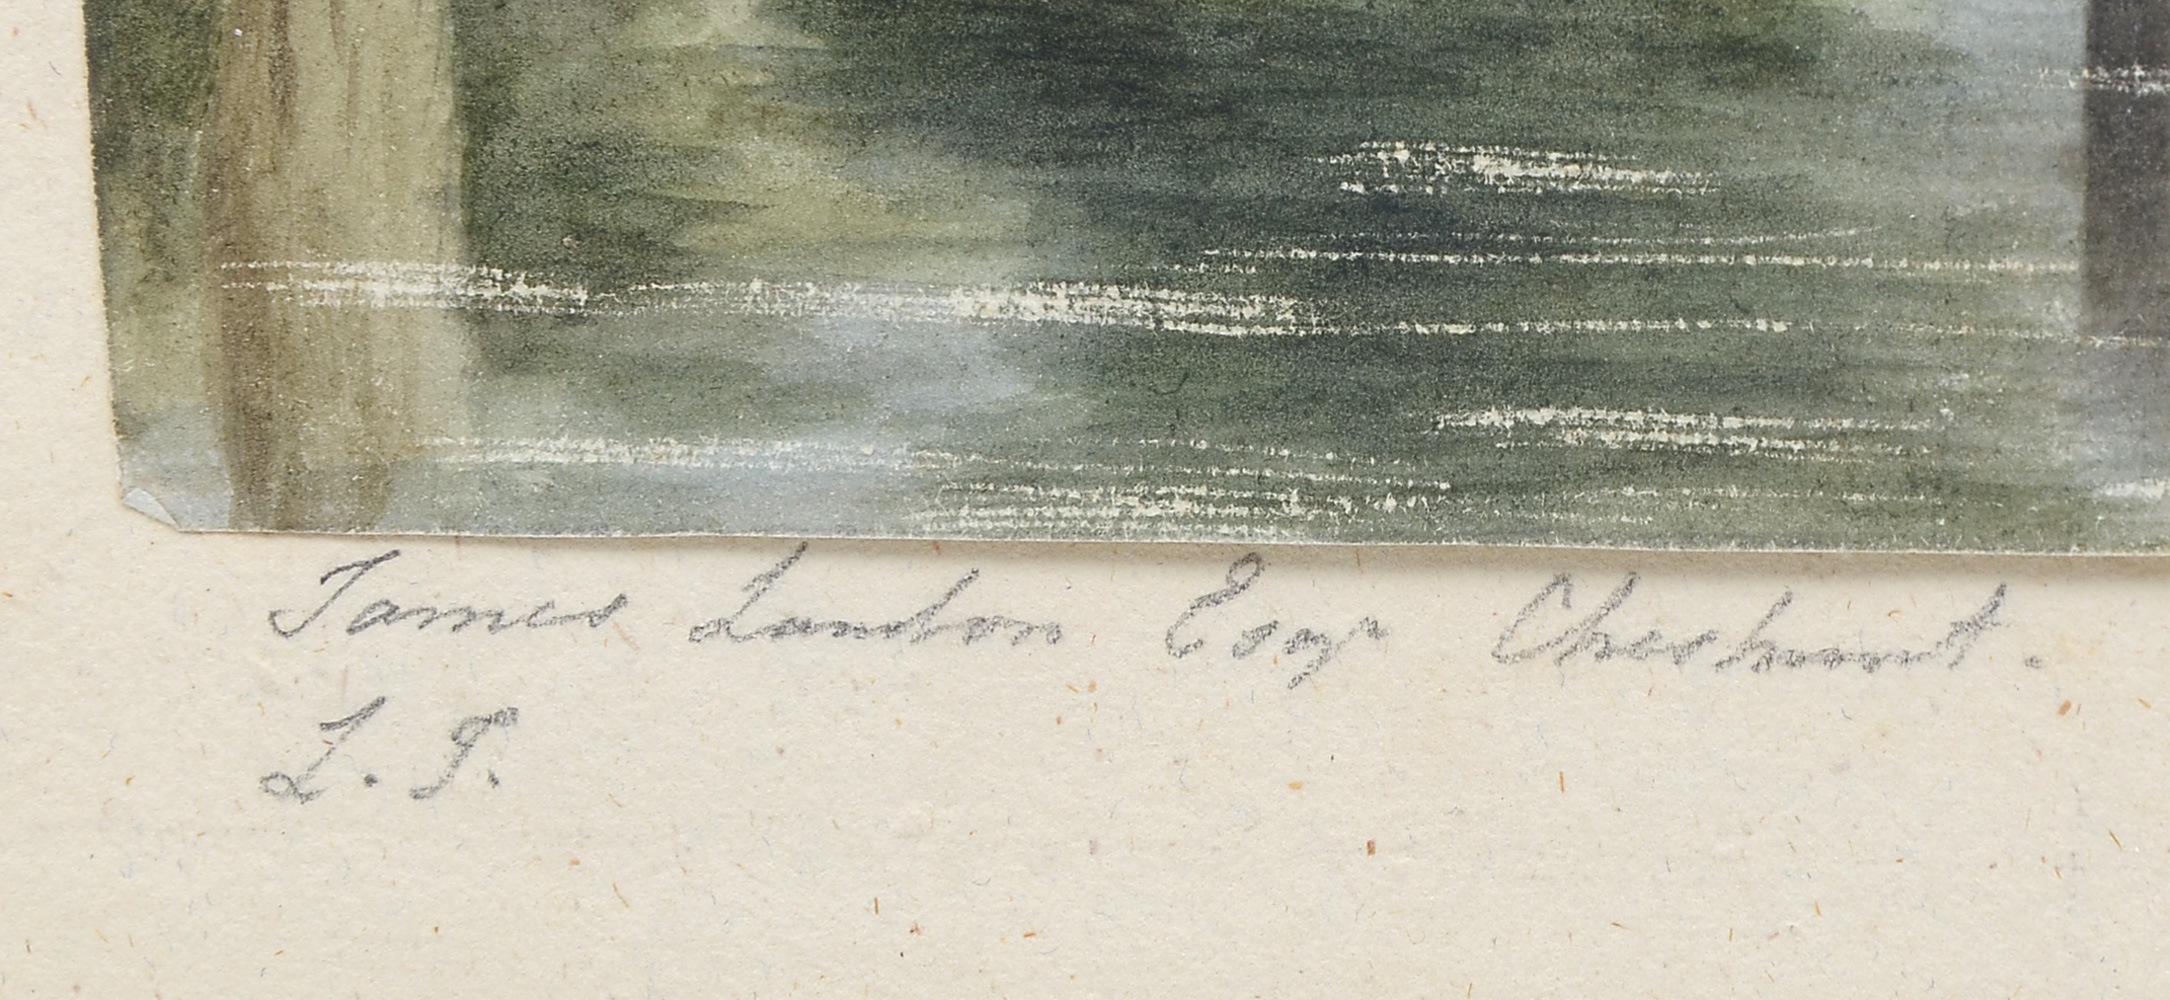 James Landon Esqr Cheshunt.
L.